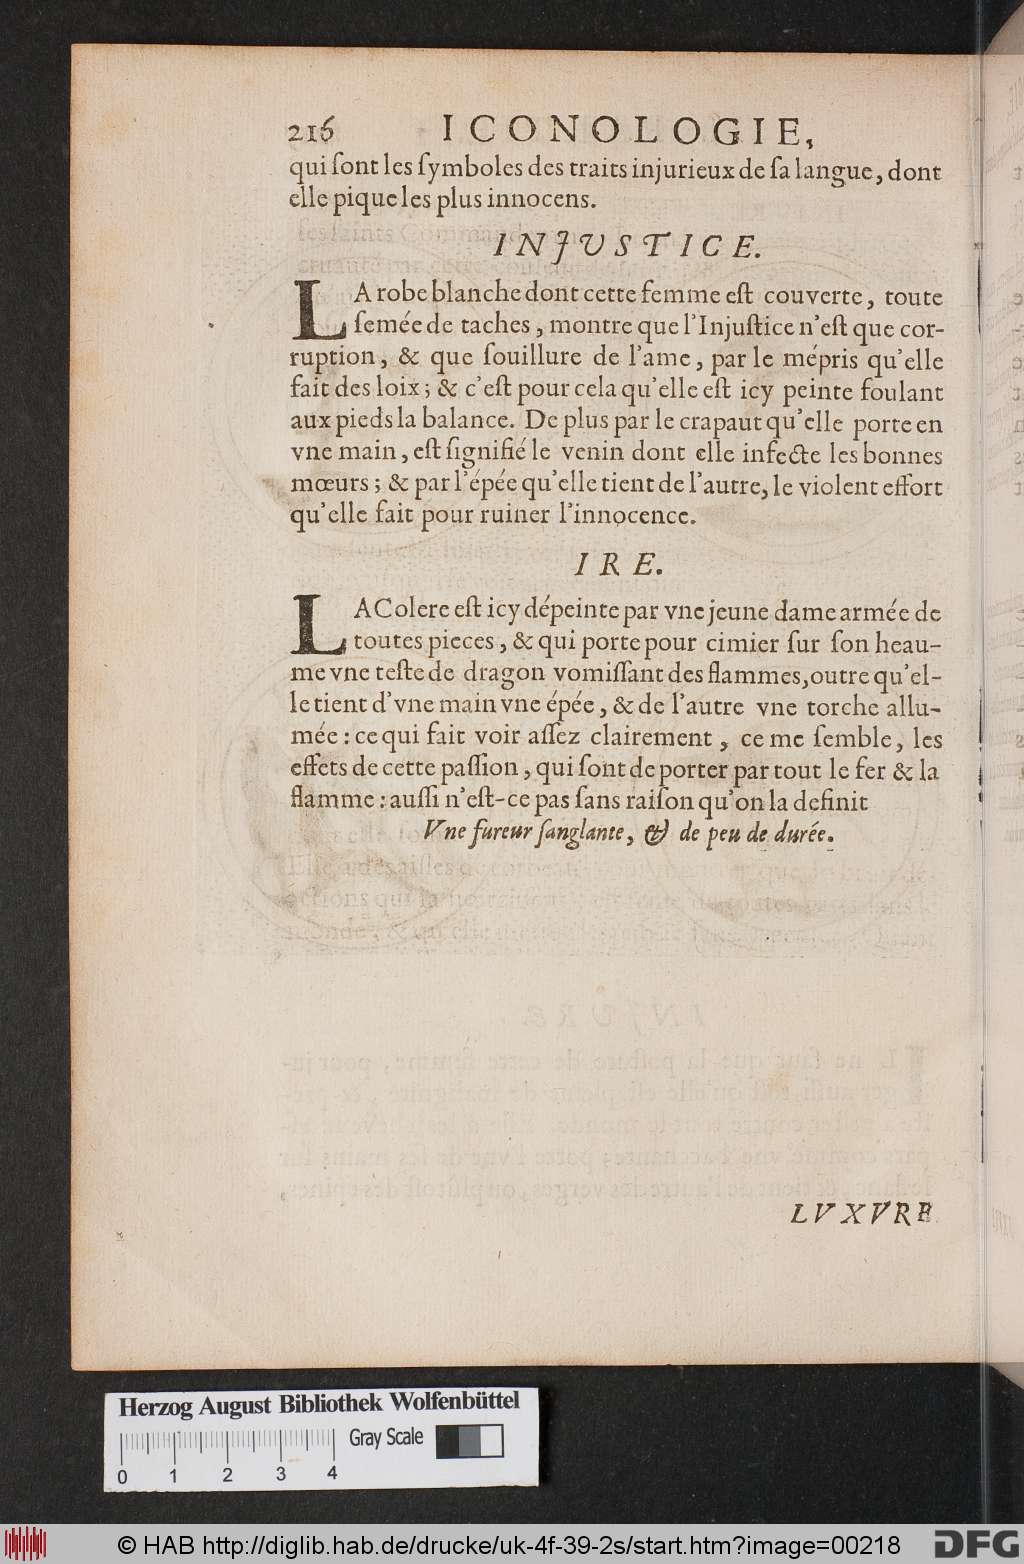 216 ICONOLOGIE,
qui ſont les ſymboles des traits injurieux de ſa langue, dont
elle pique les plus innocens.
INJVSTICE.
LA robe blanche dont cette femme eſt couverte, toute
ſemée de taches, montre que l'Injuſtice n'eſt que cor-
ruption, & que ſouillure de l'ame, par le mépris qu'elle
fait des loix; & c'eſt pour cela qu'elle eſt icy peinte foulant
aux pieds la balance. De plus par le crapaut qu'elle porte en
vne main, eſt ſignifié le venin dont elle infecte les bonnes
mœurs; & par l'épée qu'elle tient de l'autre, le violent effort
qu'elle fait pour ruiner l'innocence.
IRE.
LA Colere eſt icy dépeinte par vne jeune dame armée de
toutes pieces, & qui porte pour cimier ſur ſon heau-
me vne teſte de dragon vomiſſant des flammes, outre qu'el-
le tient d'vne main vne épée, & de l'autre vne torche allu-
mée: ce qui fait voir aſſez clairement, ce me ſemble, les
effets de cette paſſion, qui ſont de porter par tout le fer & la
flamme: auſſi n'eſt-ce pas ſans raiſon qu'on la definit
Vne fureur ſanglante, & de peu de durée.
LVXVRE
Herzog August Bibliothek Wolfenbüttel
Gray Scale
0 1 2 3 4
© HAB http://diglib.hab.de/drucke/uk-4f-39-2s/start.htm?image=00218
DFG